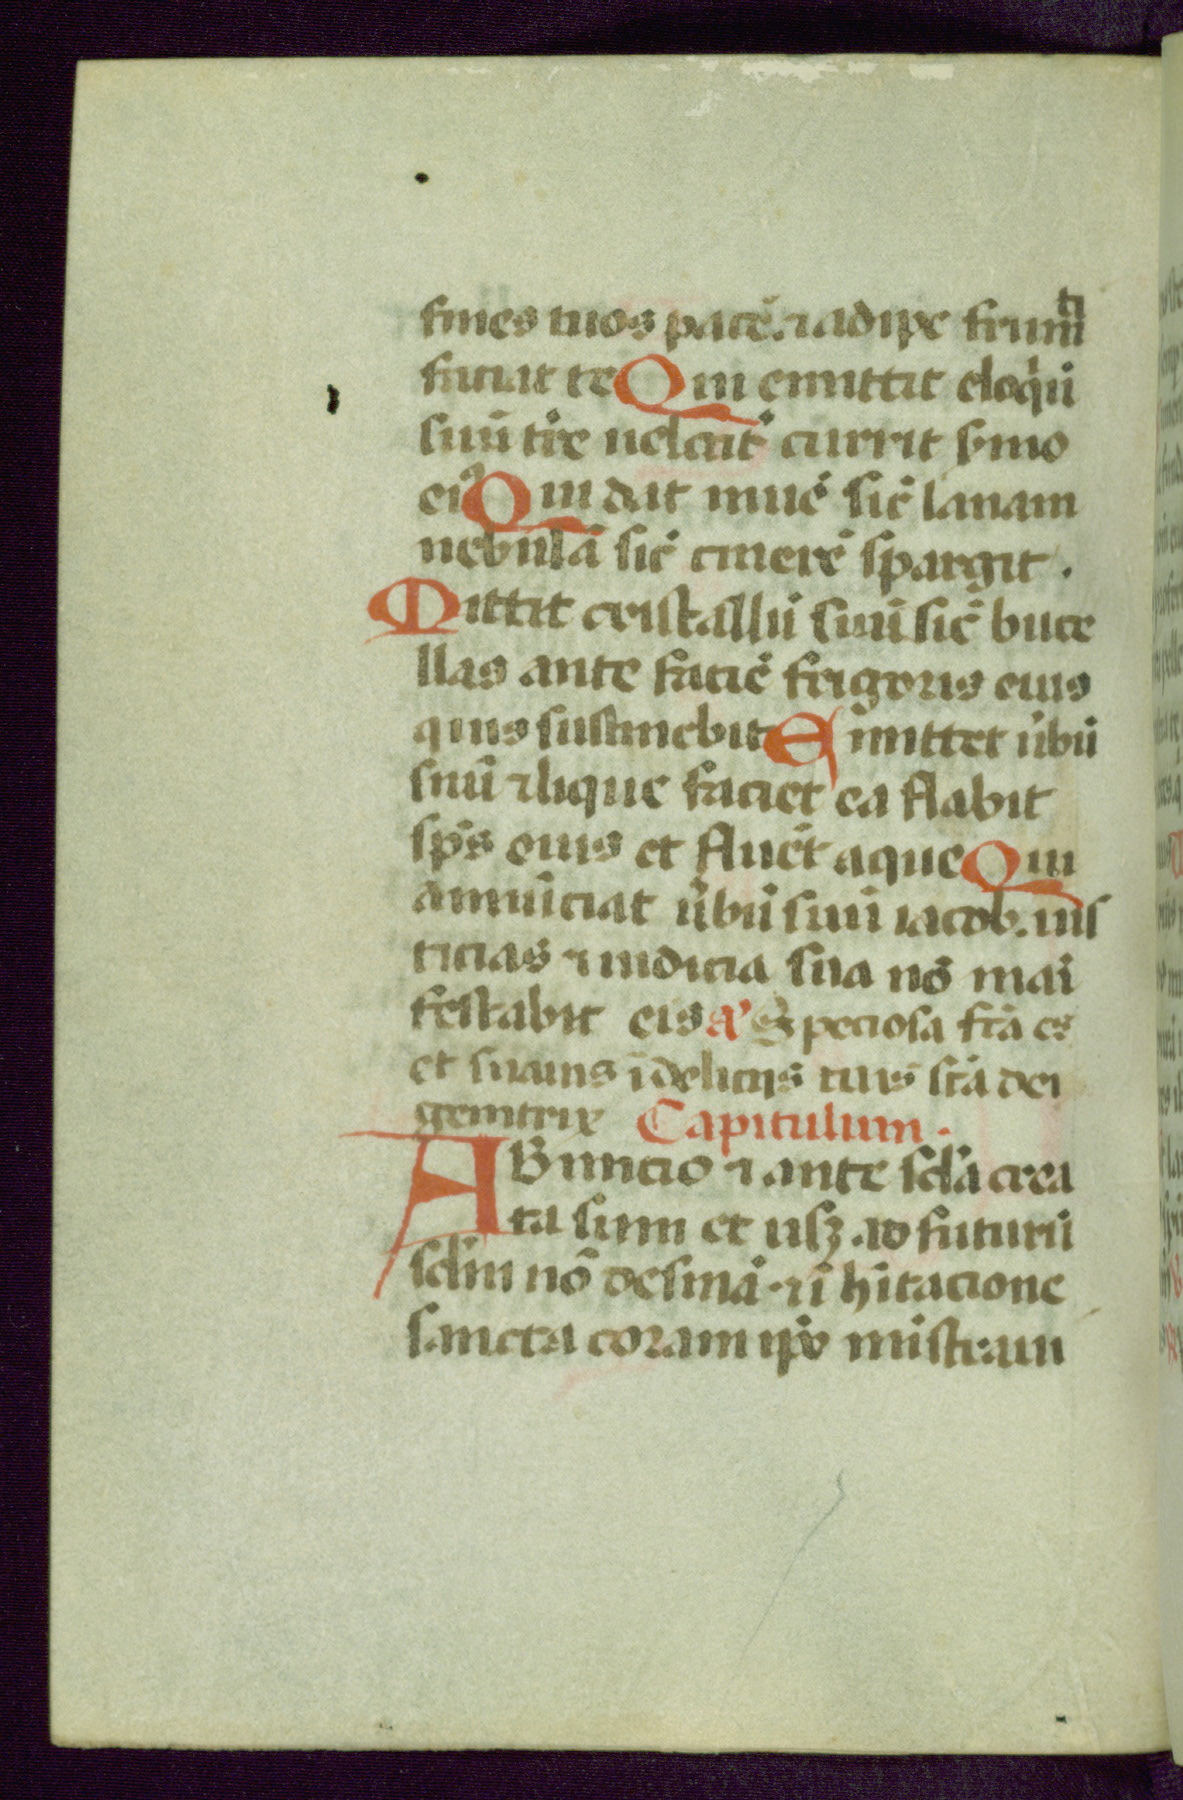 fines tuos pacē. ⁊ adipe frum̄ti
saciat te Qui emittit eloq̇ū
suū tr̄e uelocit̄ currit s̄mo
eiꝰ Qui dat niuē sic̄ lanam
nebulā sic̄ cinerē spargit .
Mittit cristallū suū sic̄ buce
llas ante faciē frigoris eius
quis sustinebit Emittet ūbū
suū ⁊ lique faciet ea flabit
sp̄s eius et fluēt aque Qui
annūciat ūbū suū iacob. ius
ticias ⁊ iudicia sua nō mai
festabit eis a᷑ Speciosa fc̄a es
et suauis ī deliciis tuis sc̄a dei
genitrix Capitulum .
AB inicio ⁊ ante sc̄la crea
ta sum et usqꝫ ad futurū
sc̄lm nō desinā . ⁊ ī hītacione
sancta coram ip̄o mīstraui